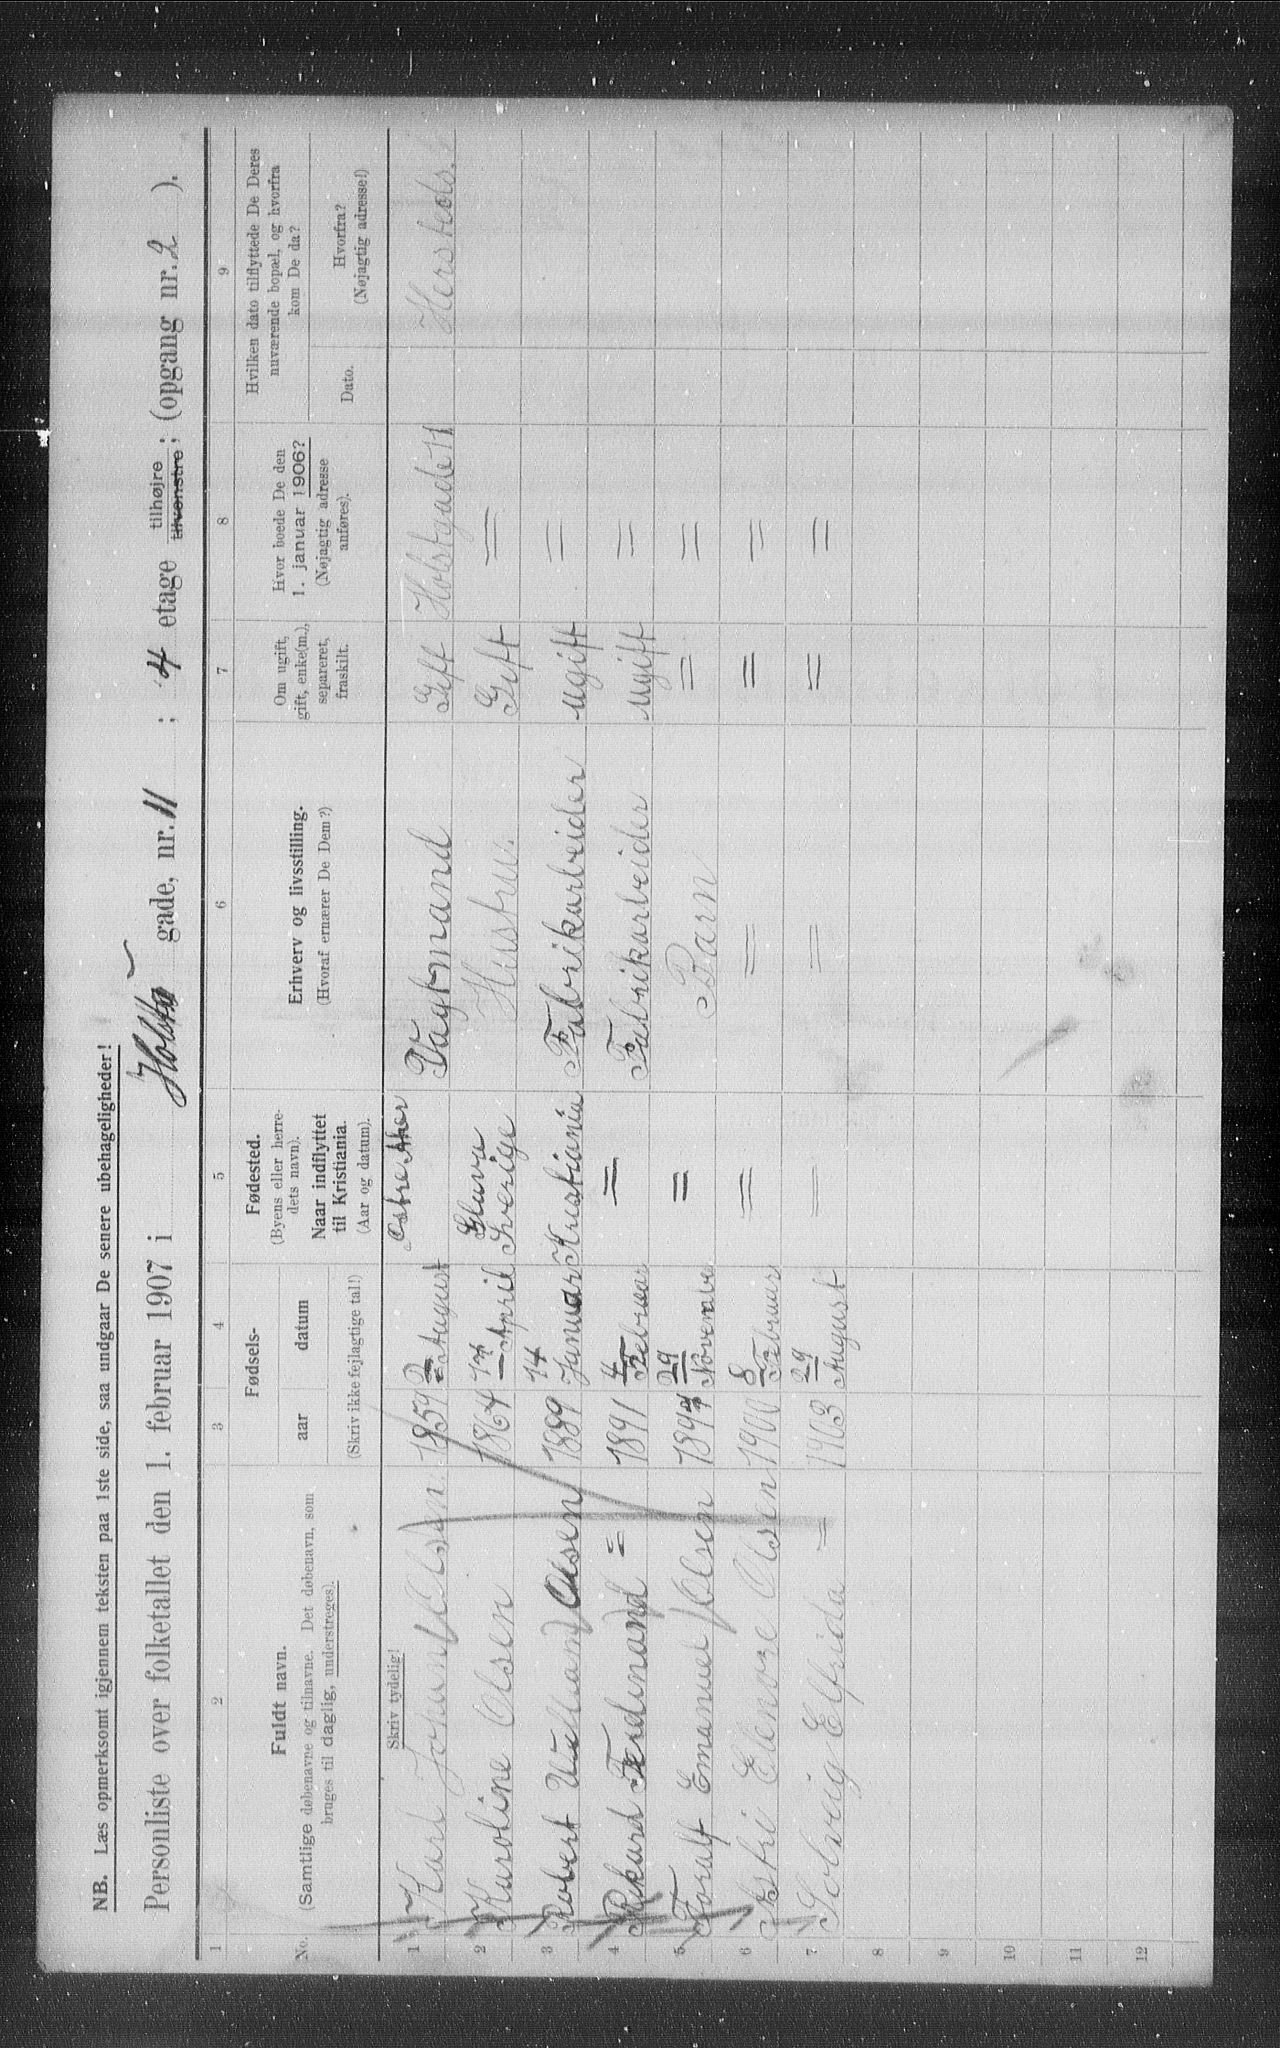 NB. Læs opmerksomt igjennem teksten paa 1ste side, saa undgaar De senere ubehageligheder!
Personliste over folketallet den 1. februar 1907 i Holsts gade, nr. 11; 4 etage tilhøjre tilvenstre; (opgang nr. 2).
1 2 3 4 5 6 7 8 9
No.
Fuldt navn.
(Samtlige døbenavne og tilnavne. Det døbenavn, som
bruges til daglig, understreges).
Fødsels-
aar datum
(Skriv ikke fejlagtige tal!)
Fødested.
(Byens eller herre-
dets navn).
Naar indflyttet
til Kristiania.
(Aar og datum).
Erhverv og livsstilling.
(Hvoraf ernærer De Dem?)
Om ugift,
gift, enke(m.),
separeret,
fraskilt.
Hvor boede De den
1. januar 1906?
(Nøjagtig adresse
anføres).
Hvilken dato tilflyttede De Deres
nuværende bopæl, og hvorfra
kom De da?
Dato.
Hvorfra?
(Nøjagtig adresse!)
Skriv tydelig!
1 Karl Johan Olsen. 1859 2 August Østre Aker Vagtmand Gift Holstgade 11 Hersteds.
2 Karoline Olsen 1864 14 April Glava Sverige Hustru. Gift =
3 Robert William Olsen 1889 14 Januar Kristiania Fabrikarbeider Ugift =
4 Rikard Ferdinand = 1891 4 Februar = Fabrikarbeider Ugift =
5 Toralf Emanuel Olsen 1894 29 November = Barn = =
6 Astri Elenore Olsen 1900 8 Februar = = = =
7 Solveig Elfrida = 1903 29 August = = = =
8
9
10
11
12